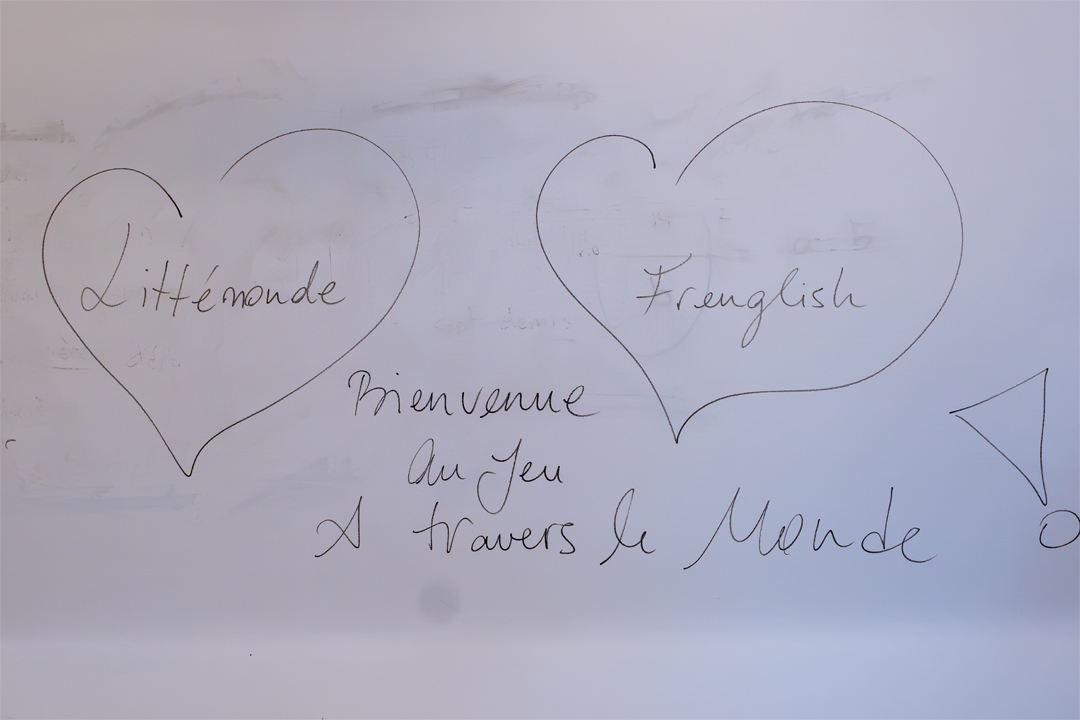 Littémonde
Frenglish
Bienvenue
Au Jeu
A travers le Monde